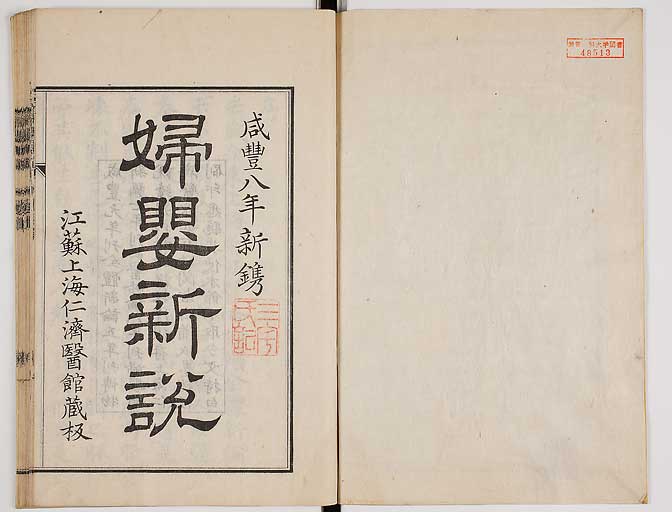 咸豐八年新鐫
婦嬰新説
江蘇上海仁濟醫館蔵板
48513